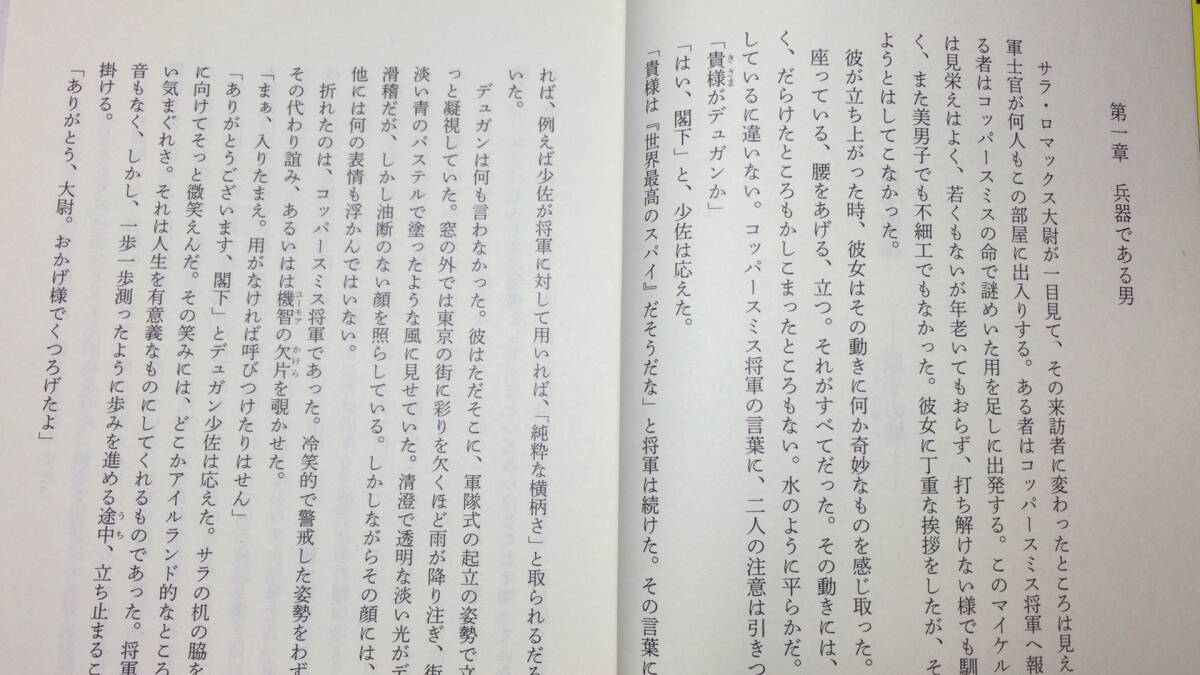 第一章　兵器である男
サラ・ロマックス大尉が一目見て、その来訪者に変わったところは見え
軍士官が何人もこの部屋に出入りする。ある者はコッパースミス将軍へ報
る者はコッパースミスの命で謎めいた用を足しに出発する。このマイケル
は見栄えはよく、若くもないが年老いてもおらず、打ち解けない様でも馴
く、また美男子でも不細工でもなかった。彼女に丁重な挨拶をしたが、そ
ようとはしてこなかった。
彼が立ち上がった時、彼女はその動きに何か奇妙なものを感じ取った。
座っている、腰をあげる、立つ。それがすべてだった。その動きには、
く、だらけたところもかしこまったところもない。水のように平らかだ。
しているに違いない。コッパースミス将軍の言葉に、二人の注意は引きつ
「貴様がデュガンか」
きさま
「はい、閣下」と、少佐は応えた。
「貴様は『世界最高のスパイ』だそうだな」と将軍は続けた。その言葉に
れば、例えば少佐が将軍に対して用いれば、「純粋な横柄さ」と取られるだろ
いた。
デュガンは何も言わなかった。彼はただそこに、軍隊式の起立の姿勢で立
っと凝視していた。窓の外では東京の街に彩りを欠くほど雨が降り注ぎ、街
淡い青のパステルで塗ったような風に見せていた。清澄で透明な淡い光がデ
滑稽だが、しかし油断のない顔を照らしている。しかしながらその顔には、
他には何の表情も浮かんではいない。
折れたのは、コッパースミス将軍であった。冷笑的で警戒した姿勢をわず
その代わり誼み、あるいはは機智の欠片を覗かせた。
ユーモア　かけら
「まぁ、入りたまえ。用がなければ呼びつけたりはせん」
「ありがとうございます、閣下」とデュガン少佐は応えた。サラの机の脇を
に向けてそっと微笑えんだ。その笑みには、どこかアイルランド的なところ
い気まぐれさ。それは人生を有意義なものにしてくれるものであった。将軍
音もなく、しかし、一歩一歩測ったように歩みを進める途中、立ち止まるこ
うち
掛ける。
「ありがとう、大尉。おかげ様でくつろげたよ」